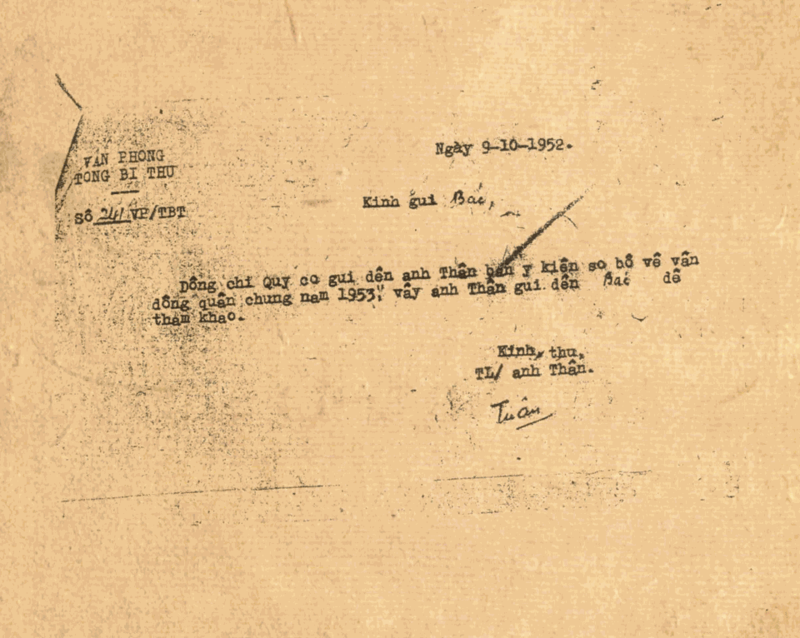 Ngày 9-10-1952.
VAN PHONG
TONG BI THU
Sô 241 VP/TBT
Kinh gui Bác,
Dông chi Quy co gui dên anh Thân ban y kiên so bô vê vân
dông quân chung nam 1953, vây anh Thân gui dên Bác dê
tham khao.
Kinh thu,
TL/ anh Thân.
Tuân